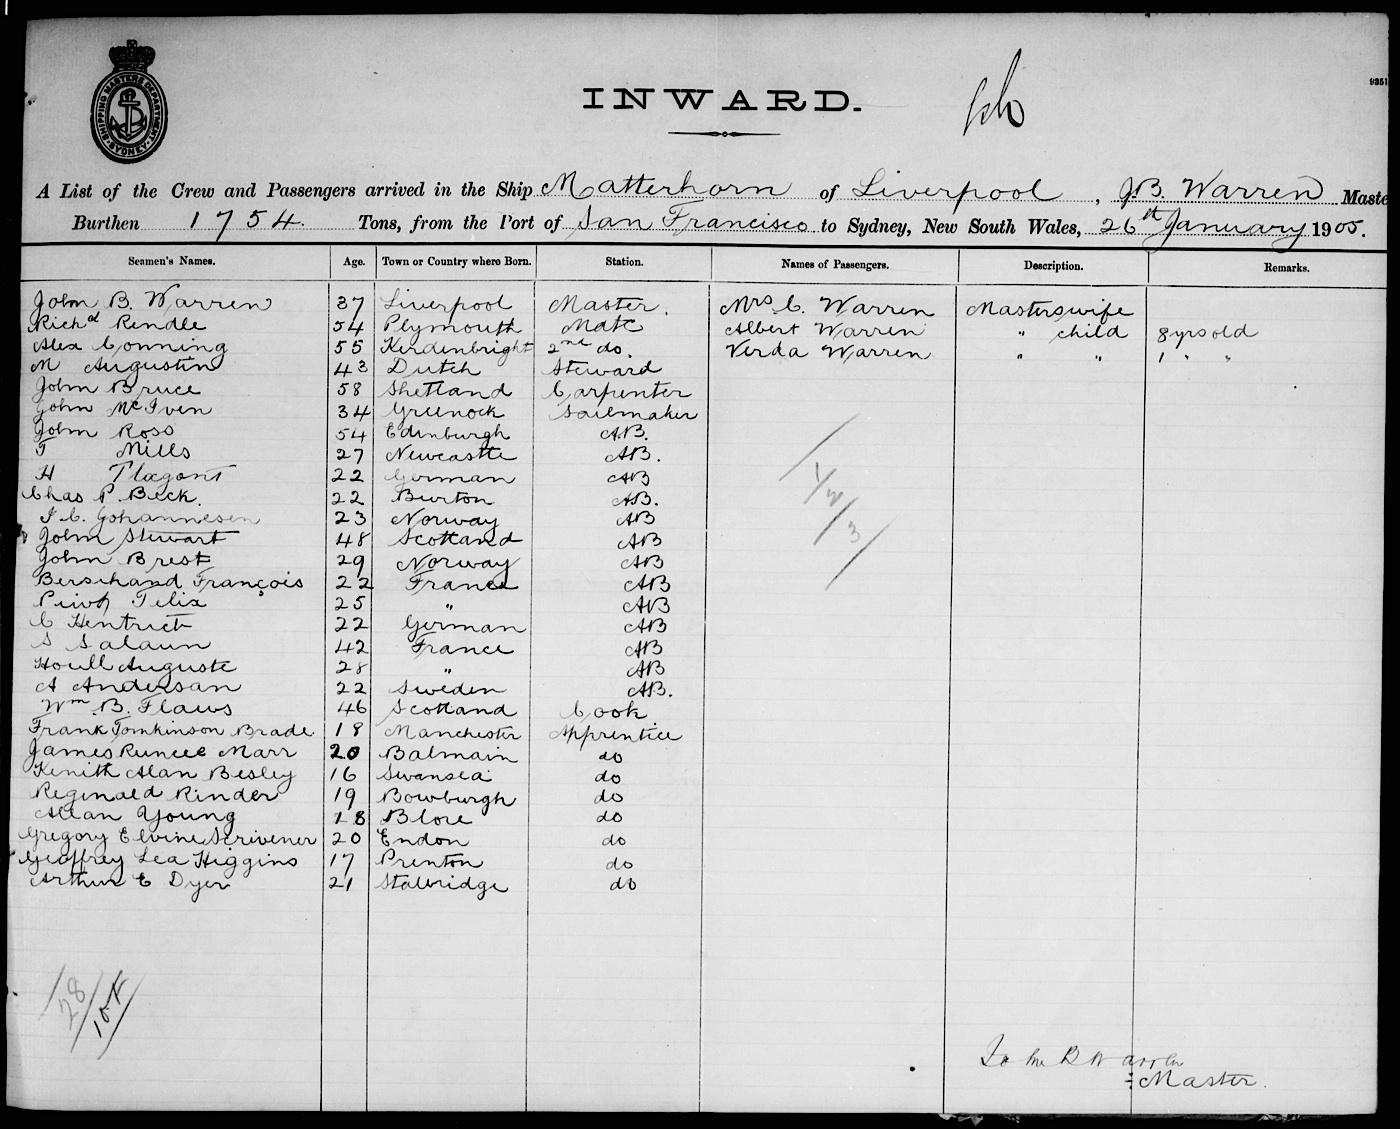 SHIPPING MASTERS DEPARTMENT SYDNEY
9351
INWARD.
A List of the Crew and Passengers arrived in the Ship Matterhorn of Liverpool, J.B. Warren Maste
Burthen 1754 Tons, from the Port of San Francisco to Sydney, New South Wales, 26th January 1905.
Seamen's Names. Age. Town or Country where Born. Station. Names of Passengers. Description. Remarks.
John B. Warren 37 Liverpool Master. Mrs C. Warren Masterswife
Richd Rendle 54 Plymouth Mate Albert Warren " child 8 yrs old
Alex Conning 55 Kerdenbright 2nd do. Verda Warren " " 1 " "
M Augustin 43 Dutch Steward
John Bruce 58 Shetland Carpenter
John McIven 34 Greenock Sailmaker
John Ross 54 Edinburgh AB.
T Mills 27 Newcastle AB.
H 22 German AB
Chas P. Beck. 22 Burton AB.
J C. Johannesen 23 Norway AB
John Stewart 48 Scotland AB
John Brest 29 Norway AB
François 22 France AB
Felix 25 " AB
C Hentrich 22 German AB
S Salaun 42 France AB
Houll Auguste 28 " AB
A Andersan 22 Sweden AB.
Wm. B. Flaws 46 Scotland Cook
Frank Tomkinson Brade 18 Manchester Apprentice
James Runcee Marr 20 Balmain do
Kenith Alan Besley 16 Swansea do
Reginald Rinder 19 Bowburgh do
Allan Young 18 Blore do
Gregory Elvine Scrivener 20 Endon do
Geoffrey Lea Higgins 17 Prenton do
Arthur E Dyer 21 Stalbridge do
28
John B Warren
Master.